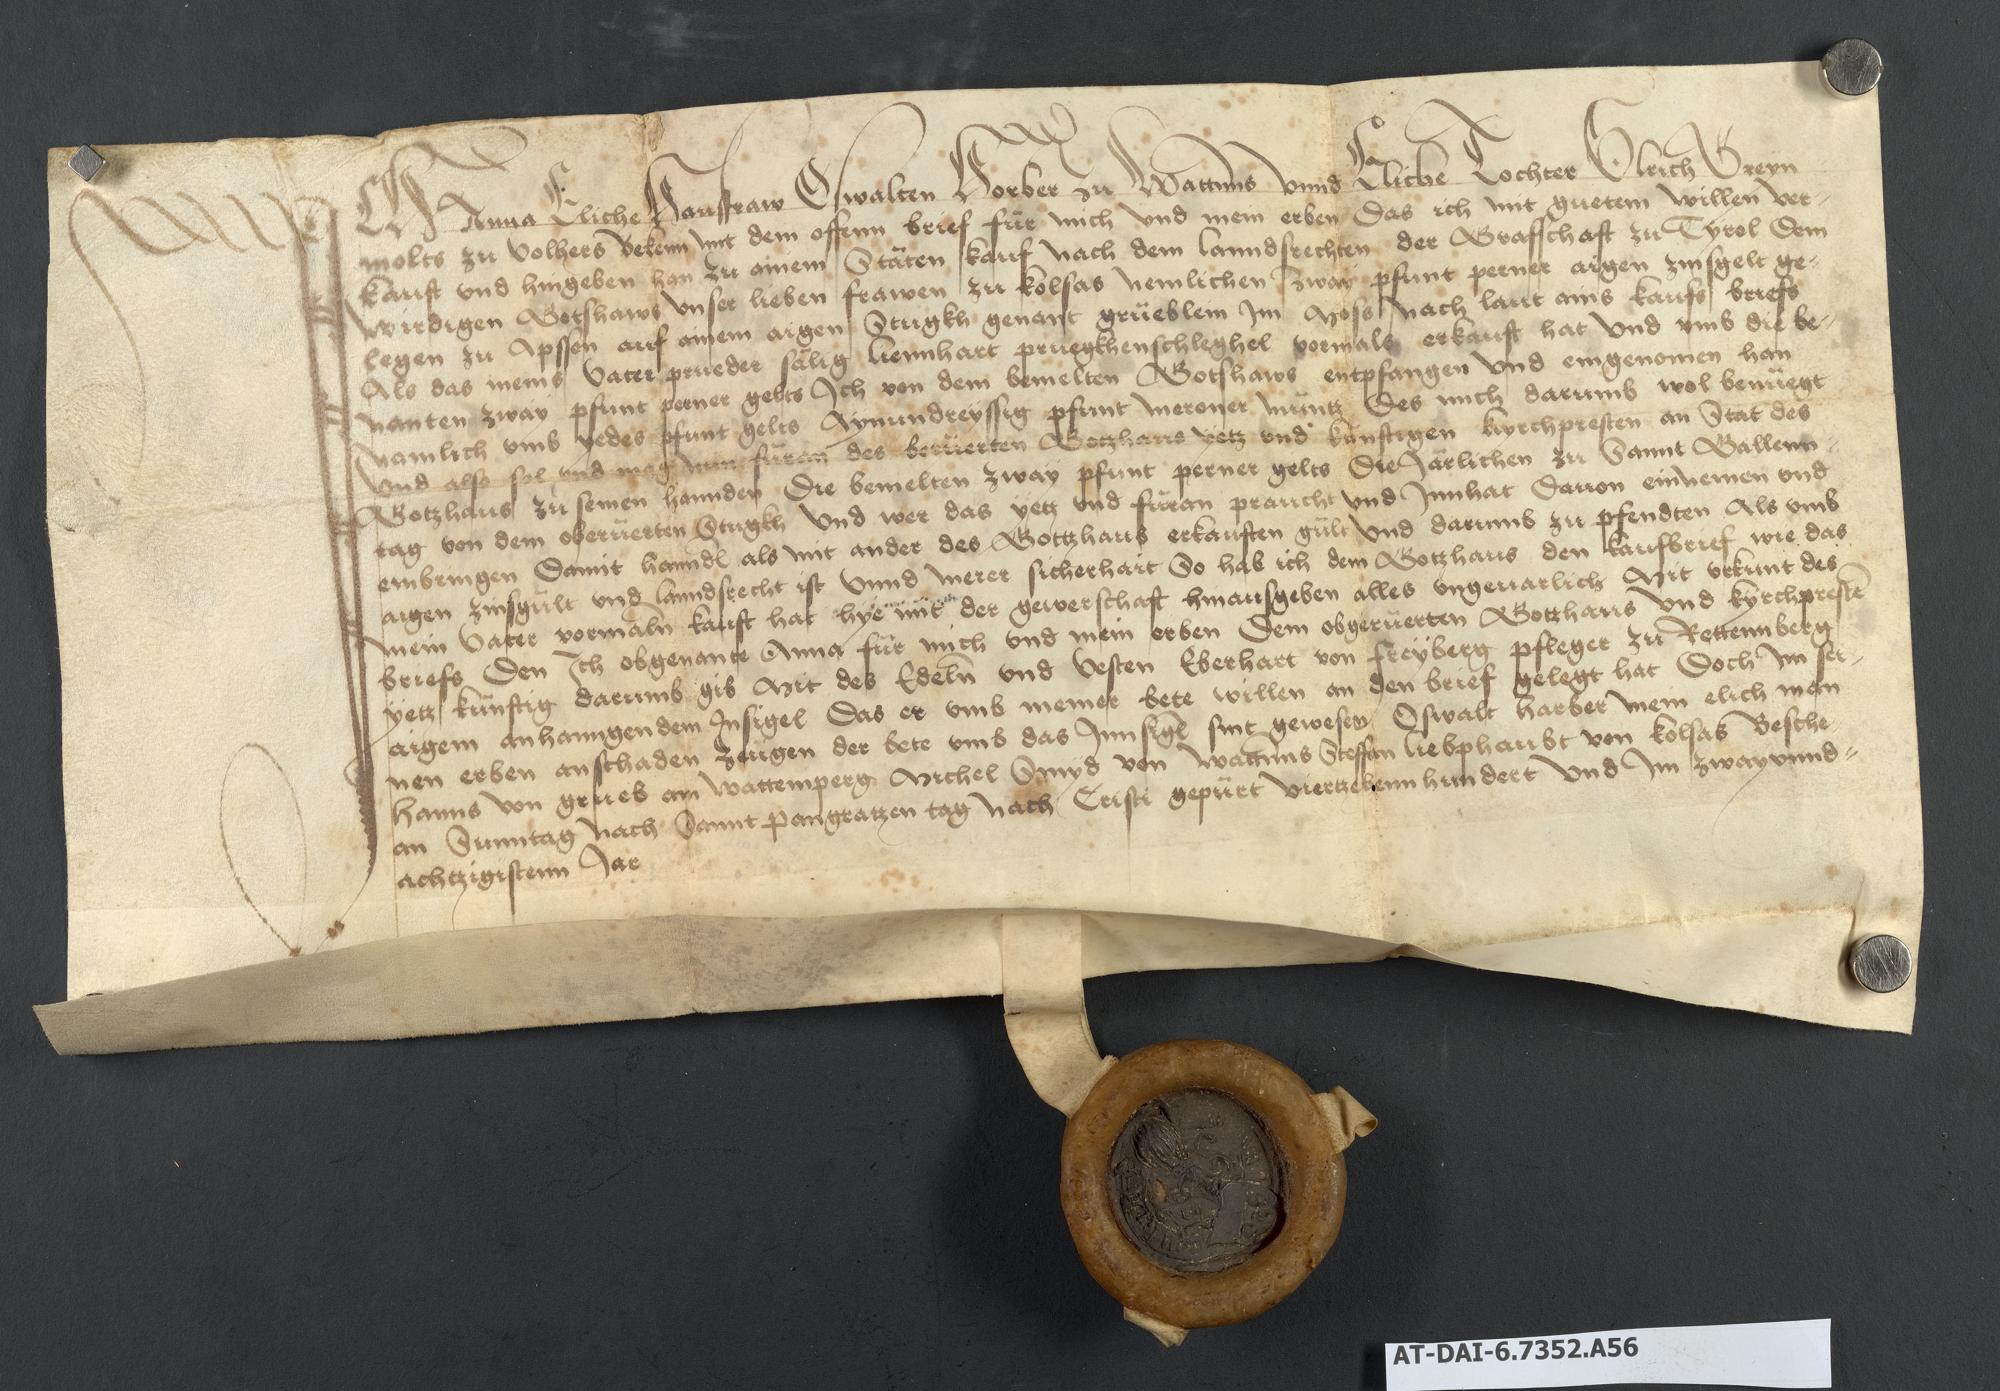 Ich Anna Eliche Hausfraw Oswalten Horber zu Wattnns vnnd Eliche Tochter Vlrich Greyn
molts zu Volhers Bekenn mit dem offenn brief für mich vnd mein erben Das ich mit guetem willen ver-
kauft vnd hingeben han zu ainem Stäten kauf nach dem lanndsrechten der Graffschaft zu Tyrol Dem
wirdigen Gotshaws vnser lieben frawen zu kolsas Nemlichen zway pfunt perner aigen zinsgelt ge-
legen zu Apssen auf ainem aigen Stugkh genant grüeblein Im Moss nach laut ains kaufs briefs
Als das meins Vater prueder sälig liennhart pruegkhenschleghel vormals erkauft hat Vnd vmb die be-
nanten zway pfunt perner gelts Ich von dem bemelten Gotshaws entpfangen Vnd eingenomen han
Namlich vmb yedes pfunt gelts Aynundreyssig pfunt meroner müntz Des mich darumb wol benüegt
Vnd also sol vnd mag nun füran des berüerten Gotzhaus yetz vnd künftigen kyrchpresten an Stat des
Gotzhaus zu seinen hannden Die bemelten zway pfunt perner gelts Die Järlichen zu Sannt Gallenn-
tag von dem oberüerten Stugkh Vnd wer das yetz vnd füran praucht vnd Innhat Dauon einnemen vnd
einbringen Damit hanndl als mit ander des Gottzhaus erkauften gült Vnd darumb zu pfendten Als vmb
aigen zinsgült vnd lanndsrecht ist Vnnd merer sicherhait So hab ich dem Gotzhaus den kaufbrief wie das
mein Vater vormaln kauft hat hye mit der gewerschaft hinausgeben alles vngeuarlich Mit vrkunt des
briefs Den Ich obgenante Anna für mich vnd mein erben Dem obgerüerten Gotzhaus Vnd kyrchpresten
yetz künftig darumb gib Mit des Edeln vnd Vesten Eberhart von freyberg pfleger zu Rettennberg
aigem anhanngendem Insigel Das er vmb meiner bete willen an den brief gelegt hat Doch Im sei-
nen erben an schaden Zeugen der bete vmb das Innsigl sint gewesen Oswalt harber mein elich man
hanns von grueb am Wattemperg Michel Smyd von Wattnns Steffan liebphaubt von kolsas Besche-
an Sunntag Nach Sannt Pangratzen tag Nach Cristi gepürt viertzehennhundert Vnd Im zwayvnnd-
achtzigistenn Jar
AT-DAI-6.7352.A56